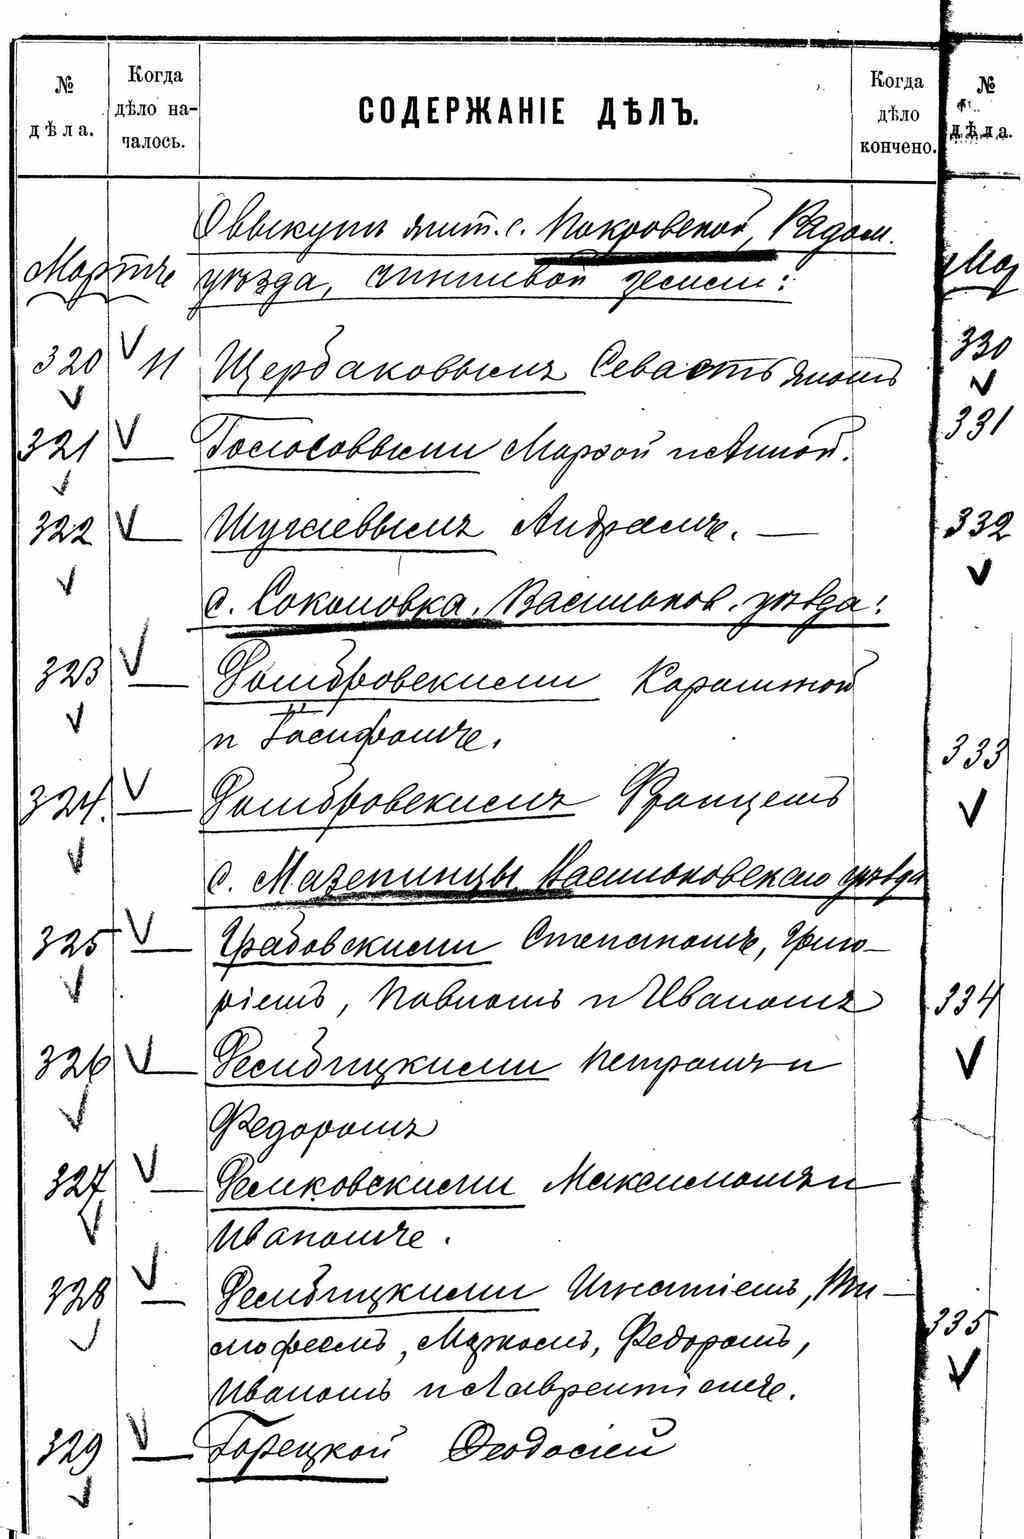 № дѣла.
Когда дѣло на-чалось.
СОДЕРЖАНІЕ ДѢЛЪ.
Когда дѣло кончено.
№ дѣла.
О выкупѣ жит. с. Покровской, Радом.
Мартъ уѣзда, чиншевой земли:
320 11 Щербаковымъ Севастьяномъ
330
321 — Голосовыми Марѳой и Анной.
331
322 — Шугаевымъ Андреемъ. —
332
с. Соколовка, Васильков. уѣзда:
323 — Домбровскими Каролиной
и Іосифомъ.
333
324. — Домбровскимъ Францемъ
с. Мазепинцы Васильковскаго уѣзда
325 — Грабовскими Степаномъ, Григо-
ріемъ, Павломъ и Иваномъ
334
326 — Дембицкими Петромъ и
Федоромъ
327 — Демковскими Максимомъ и
Иваномъ.
328 — Дембицкими Игнатіемъ, Ти-
мофеемъ, Федоромъ,
335
Иваномъ и Лаврентіемъ.
329 — Горецкой Феодосіей